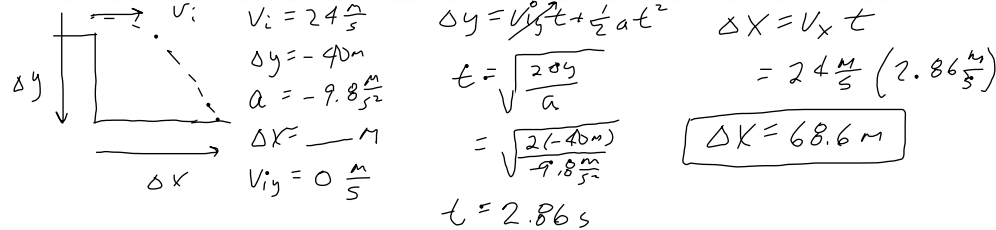 Vi
Δy
Δx
Vi = 24 m/s
Δy = -40m
a = -9.8 m/s²
Δx = ___ m
Viy = 0 m/s
Δy = Viy t + 1/2 at²
t = √(2Δy/a)
= √(2(-40m)/-9.8 m/s²)
t = 2.86 s
Δx = Vx t
= 24 m/s (2.86 m/s)
Δx = 68.6 m